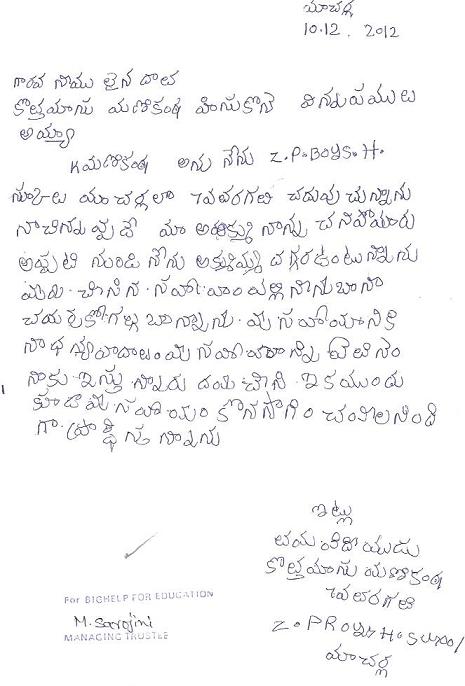 మాచర్ల
10.12. 2012
గారవ నీయు లైన దాత
కొత్తమాసు మణికంఠ వ్రాసుకొనె విన్నపములు
అయ్యా
K మణికంఠ అను నేను Z.P.Boys.H.
మాచర్లలో 7వతరగతి చదువు చున్నాను
నాచిన్నప్పుడే మా అమ్మ నాన్న చనిపోయారు
అప్పటి నుండి నేను అమ్మమ్మ దగ్గరఉంటున్నాను
మీరు చేసిన సహాయం వల్ల నేను బాగా
చదువుకోగల్గుతున్నాను. మీ సహాయానికి
నా ధన్యవాదాలు మీ సహాయాన్ని
నాకు ఇస్తు న్నారు దయ చేసి ఇక ముందు
కూడా మీ సహాయం కొనసాగించవలసింది
గా ప్రార్థిస్తున్నాను
ఇట్లు
తమ విదేయుడు
కొత్తమాసు మణికంఠ
7వతరగతి
మాచర్ల
For BIGHELP FOR EDUCATION
M. Sarojini
MANAGING TRUSTEE